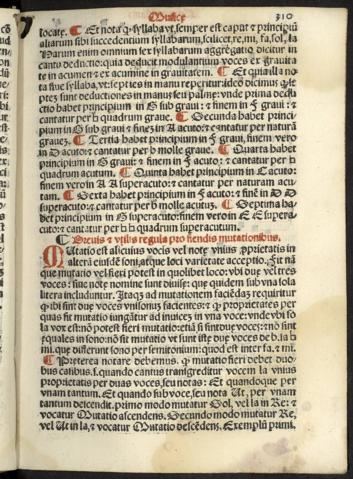 Musice 310
locate. Et nota q̃ syllaba vt, semper est caput ⁊ principiũ
aliarum sibi succedentium syllabarum, scilicet, re, mi, fa, sol, la
Harum enim omnium sex syllabarum aggregatio dicitur in
cantu deductio: quia deducit modulantium voces ex grauita
te in acumen ⁊ ex acumine in grauitatem. Et quia illa no
ta siue syllaba, vt: septies in manu reperitur: ideo dicimus q̃ se
ptez sunt deductiones in manu: seu palme: vnde prima deduc
ctio habet principium in G sub graui: ⁊ finem in E graui: ⁊
cantatur per ♮ quadrum graue. Secunda habet princi
pium in C sub graui ⁊ finez in A acuto: ⁊ cantatur per naturã
grauez. Tertia habet principium in F graui, finem vero
in D acuto: ⁊ cantatur per b molle graue. Quarta habet
principium in G graui: ⁊ finem in E acuto: ⁊ cantatur per ♮
quadrum acutum. Quinta habet principium in C acuto:
finem vero in A A superacuto: ⁊ cantatur per naturam acu
tam. Sexta habet principium in F acuto: ⁊ finẽ in D D
superacuto: ⁊ cantatur per b molle acutuz. Septima ha
bet principium in G superacuto: finem vero in E E supera
cuto: ⁊ cantatur per ♮ ♮ quadrum superacutum.
Breuis ⁊ vtilis regula pro fiendis mutationibus.
MUtatio est alicuius vocis vel note vnius proprietatis in
alterã eiusdẽ soni, atque loci varietate acceptio. Fit nã
que mutatio vel fieri potest in quolibet loco: vbi due vel tres
voces: siue note nomine sunt diuise: que quidem sub vna sola
litera includuntur. Itaq3 ad mutationem faciẽdaz requiritur
q̃ ibi sint due voces vnisonuz facientes: ⁊ q̃ proprietates per
quas fit mutatio iungãtur ad inuicez in vna voce: vnde vbi so
la vox est: nõ potest fieri mutatio: etiã si sint due voces: ⁊ nõ sint
equales in sono: nõ fit mutatio vt sunt iste due voces de b, fa ♮
mi, que differunt tono per semitonium: quod est inter fa, ⁊ mi.
Preterea notare debemus, q̃ mutatio fieri debet duo
bus casibus. s. quando cantus transgreditur vocem la vnius
proprietatis per duas voces, seu notas: Et quandoque per
vnam tantum. Et quando sub voce, seu nota Ut, per vnam
tantum descendit. primo modo mutatur Sol, vel la in Re: ⁊
vocatur Mutatio ascendens. Secundo modo mutatur Re,
vel Ut in la, ⁊ vocatur Mutatio descẽdens. Exemplũ primi.